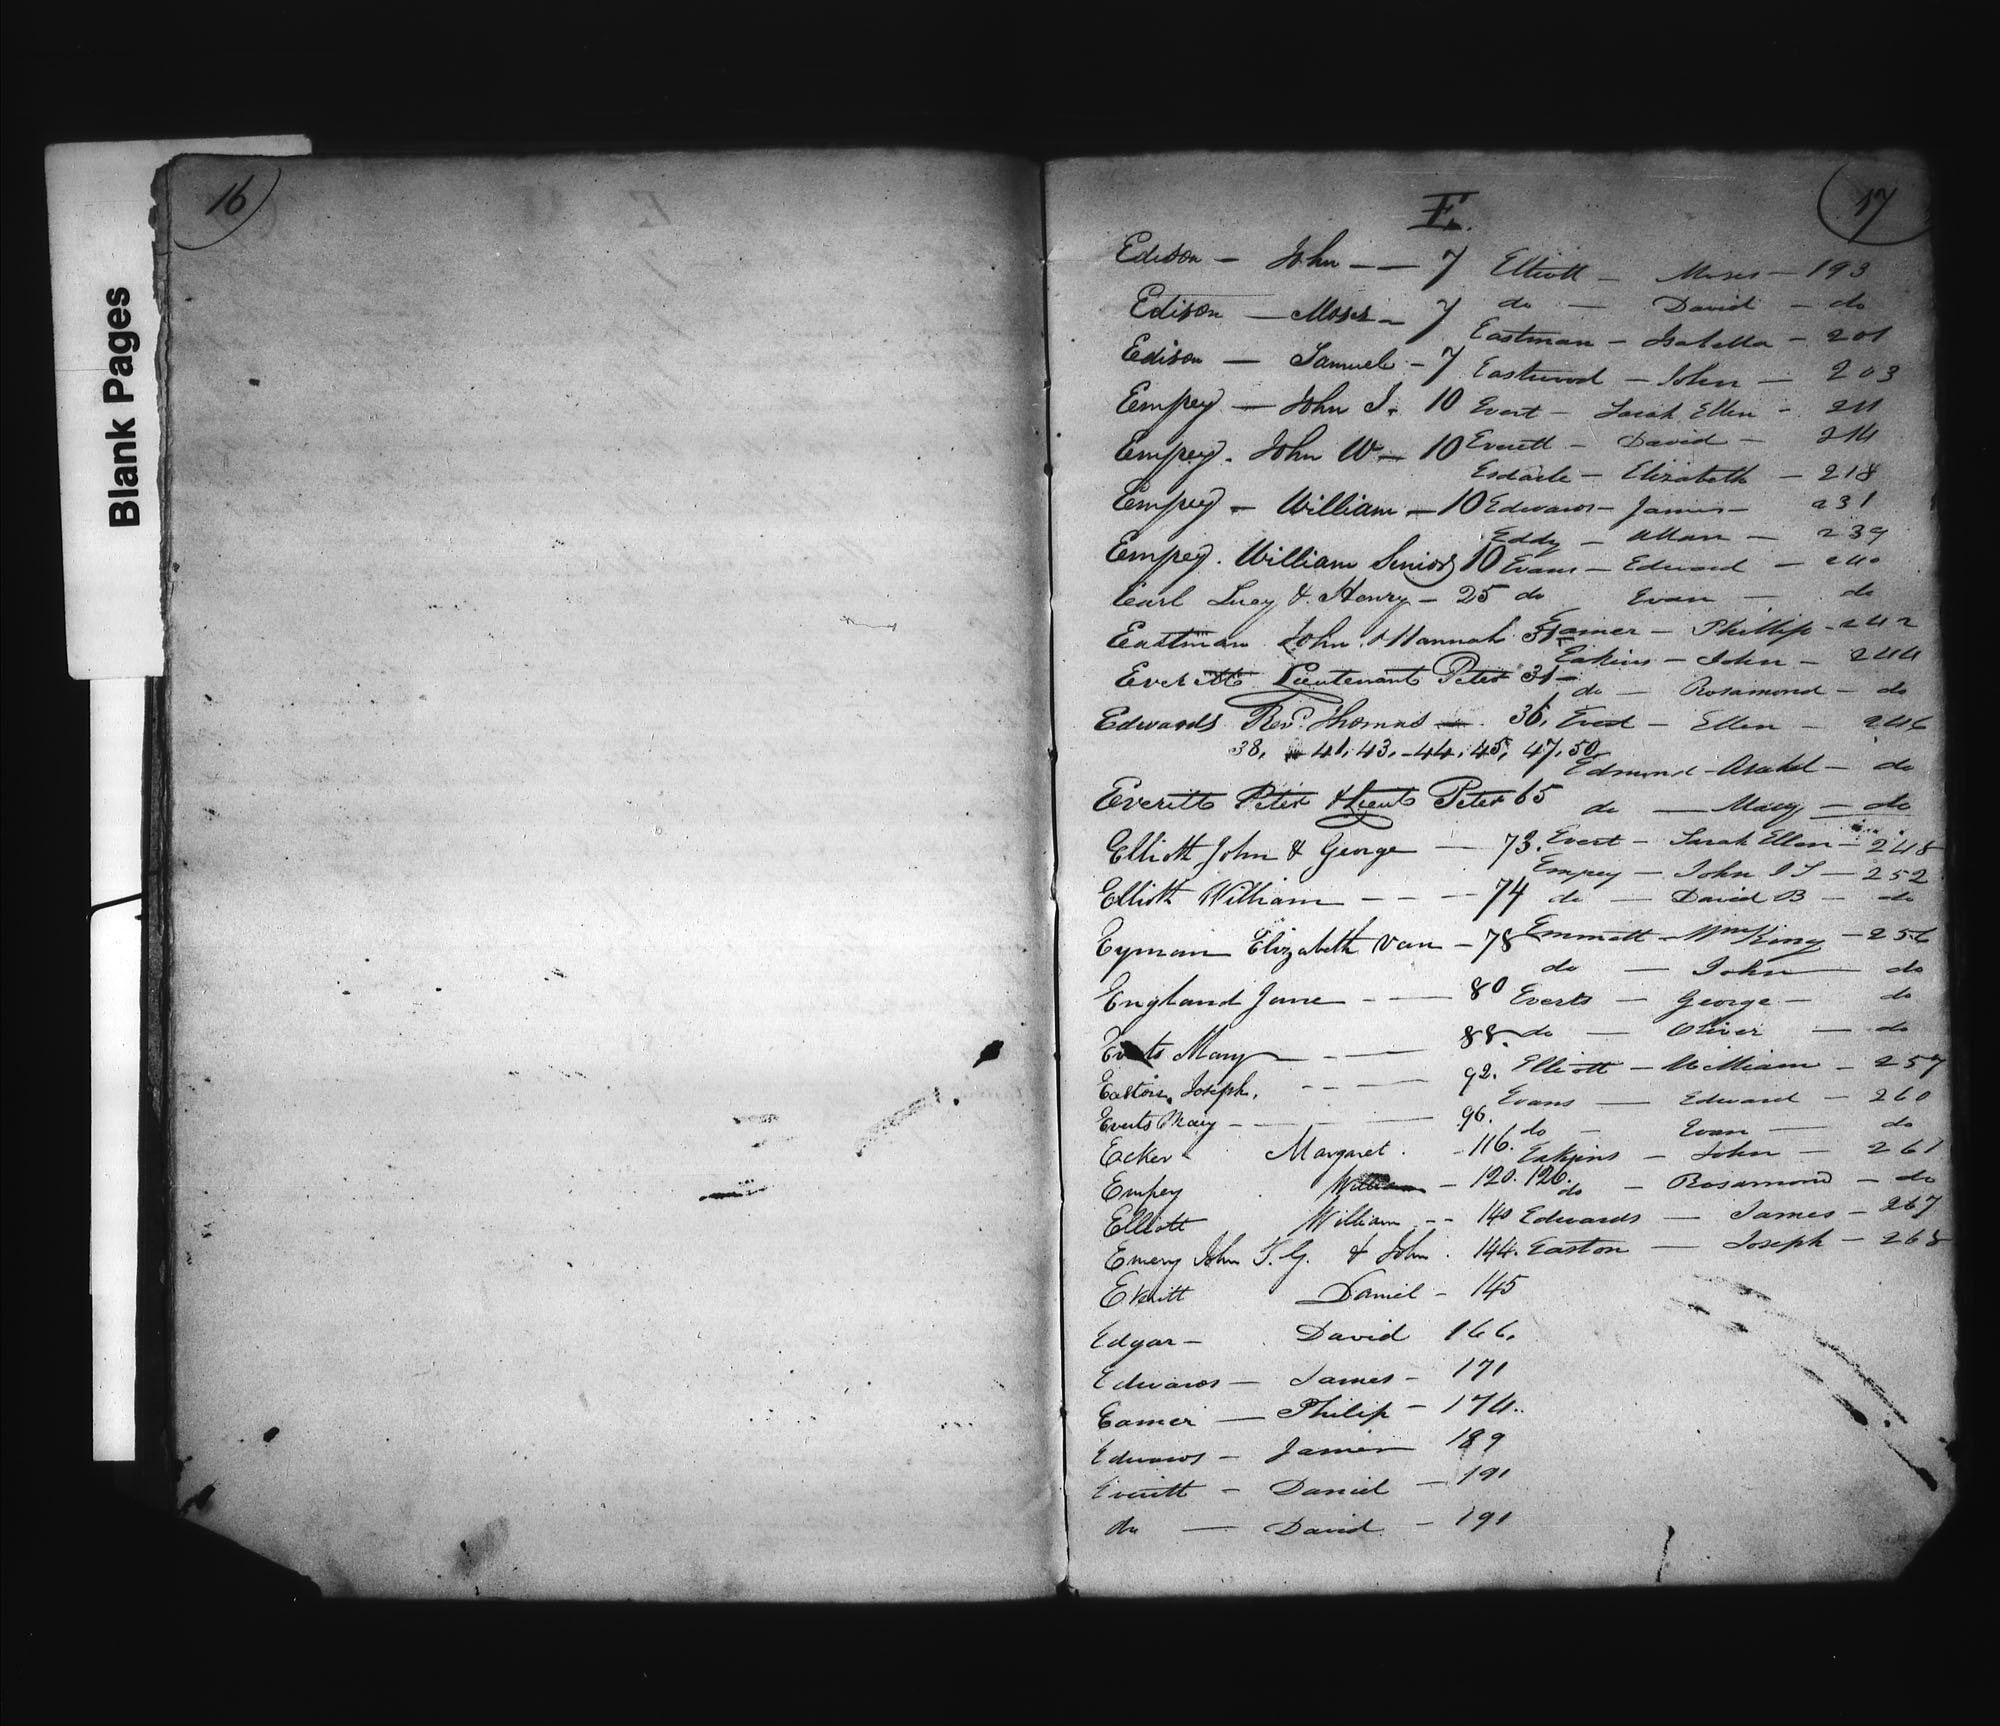 Blank Pages
16
17
E.
Edison - John - - 7
Edison - Moses - 7
Edison - Samuel - 7
Empey - John I. 10
Empey. John W - 10
Empey - William - 10
Empey. William Senior 10
Earl Lucy & Henry - 25
Eastman John & Hannah 31
Everitt Lieutenant Peter 31 -
Edwards Revd. Thomas - . 36,
38, 41, 43, -44, 45, 47, 50
Everitt Peter & Lieut Peter 65
Elliott John & George - 73.
Elliott William - - - 74
Eyman Elizabeth Van - 78
England Jane - - - 80
Mary - - - 88.
Joseph, - - - 92.
Everts Mary - - - 96.
Ecker - Margaret . - 116.
Empey William - 120. 126.
Elliott William - - 140
Emery John T. G. & John . 144.
Everitt Daniel - 145
Edgar - David 166.
Edwards - James - 171
Eamer - Philip - 174.
Edwards - James 189
Everitt - Daniel - 191
do - David - 191
Elliott - Moses - 193
do - David - do
Eastman - Isabella - 201
Eastwood - John - 203
Evert - Sarah Ellen - 211
Everett - David - 214
Elizabeth - 218
Edwards - James - 231
Eddy - Allan - 239
Evans - Edward - 240
do Evan - do
Eamer - Phillip - 242
Eakins - John - 244
do - Rosamond - do
Ellen - 246
Edmond - Asahel - do
do - Mary - do
Evert - Sarah Ellen - 248
Empey - John I S - 252
do - David B - do
Emmett - Wm King - 256
do - John - do
Everts - George - do
do - Oliver - do
Elliott - William - 257
Evans - Edward - 260
do - Evan - do
Eakins - John - 261
do - Rosamond - do
Edwards - James - 267
Easton - Joseph - 268